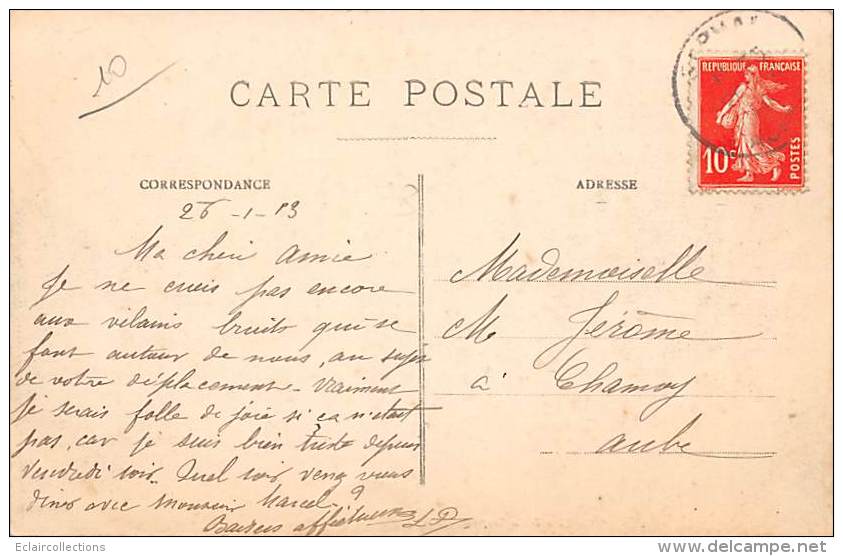 10
CARTE POSTALE
REPUBLIQUE FRANÇAISE
10c
POSTES
CORRESPONDANCE
26-1-13
Ma cheri amie
Je ne crois pas encore
aux vilains bruits qui se
font autour de nous, au sujet
de votre déplacement - vraiment
je serais folle de joie si ça n'etait
pas, car je suis bien triste depuis
Vendredi soir. Quel soir venez vous
diner avec monsieur Marcel ?
Baisers
ADRESSE
Mademoiselle
M Jérôme
à Chamoy
aube
Eclaircollections
www.delcampe.net